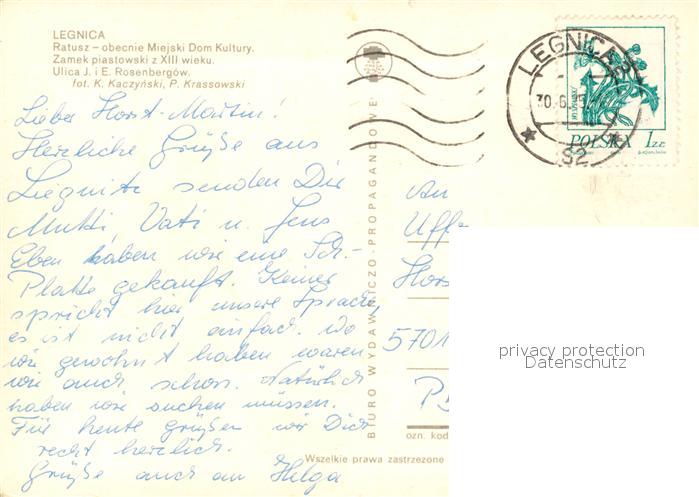 LEGNICA
Ratusz – obecnie Miejski Dom Kultury.
Zamek piastowski z XIII wieku.
Ulica J. i E. Rosenbergów.
fot. K. Kaczyński, P. Krassowski
Lieber Horst-Martin!
Herzliche Grüße aus
Liegnitz senden Dir
Mutti, Vati u. Jens
Eben haben wir eine Sch.-
Platte gekauft. Keiner
spricht hier unsere Sprache,
es ist nicht einfach. Wo
wir gewohnt haben waren
wir auch schon. Natürlich
haben wir suchen müssen.
Für heute grüßen wir Dich
recht herzlich.
Grüße auch an Helga
BIURO WYDAWNICZO-PROPAGANDOWE
LEGNICA
30.6.75
S2
POLSKA 1 ZŁ
An
Uff
Hors
5701
ozn. kod
Wszelkie prawa zastrzeżone
privacy protection
Datenschutz